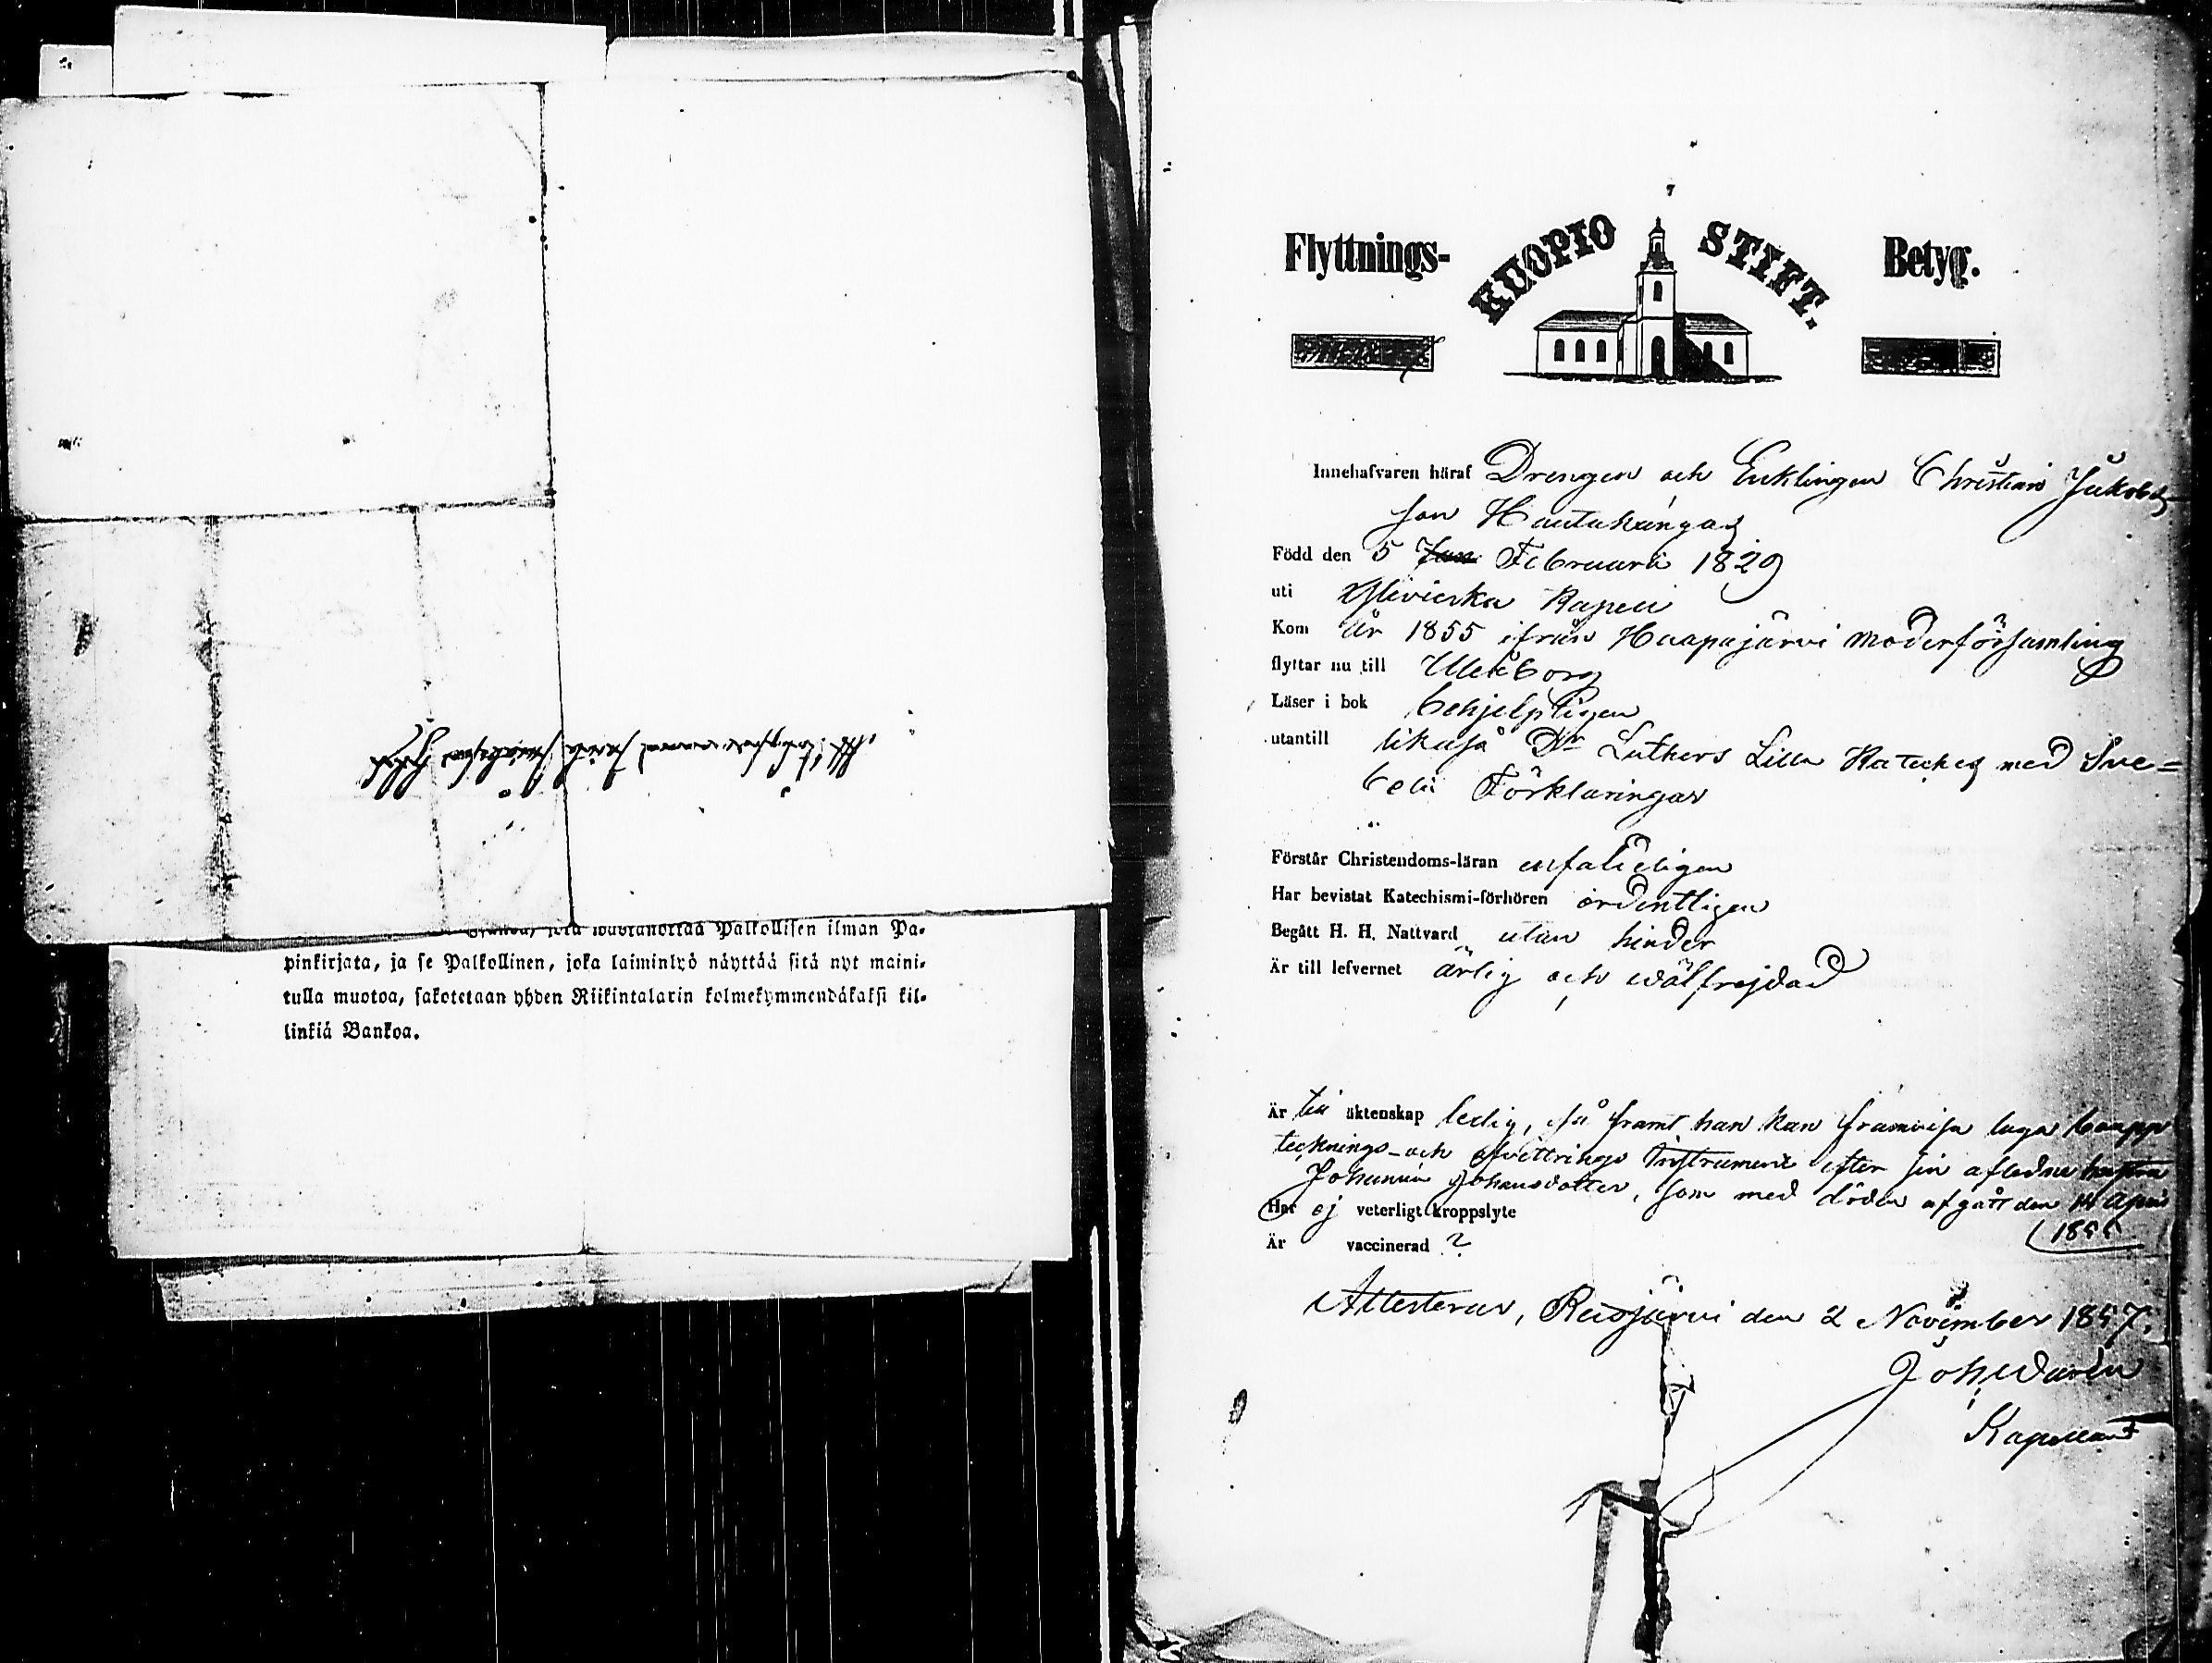 pinkirjata, ja se Palkollinen, joka laiminlyö näyttää sitä nyt maini-
tulla muotoa, sakotetaan yhden Riikintalarin kolmekymmendäkaksi kil-
linkiä Bankoa.
Flyttnings- KUOPIO STIFT. Betyg.
Innehafvaren häraf Drengen och Enklingen Christian Jakobs
son Hautakangas
Född den 5 Februari 1829
uti Ylivieska Kapell
Kom år 1855 ifrån Haapajärvi moderförsamling
flyttar nu till Uleåborg
Läser i bok behjelpligen
utantill likaså Dr Luthers Lilla Kateches med Sve=
belii Förklaringar
Förstår Christendoms-läran enfaldeligen
Har bevistat Katechismi-förhören ordentligen
Begått H. H. Nattvard utan hinder
Är till lefvernet ärlig och wälfrejdad
Är till äktenskap ledig, så framt han kan framvisa laga bouppr
tecknings- och afvittrings Instrument efter sin aflednе hustru
Johanna Johansdotter, som med döden afgått den 14 April
1855
Har ej veterligt kroppslyte
Är vaccinerad ?
Attesterar, Reisjärvi den 2 November 1857.
Joh,
Kapellan